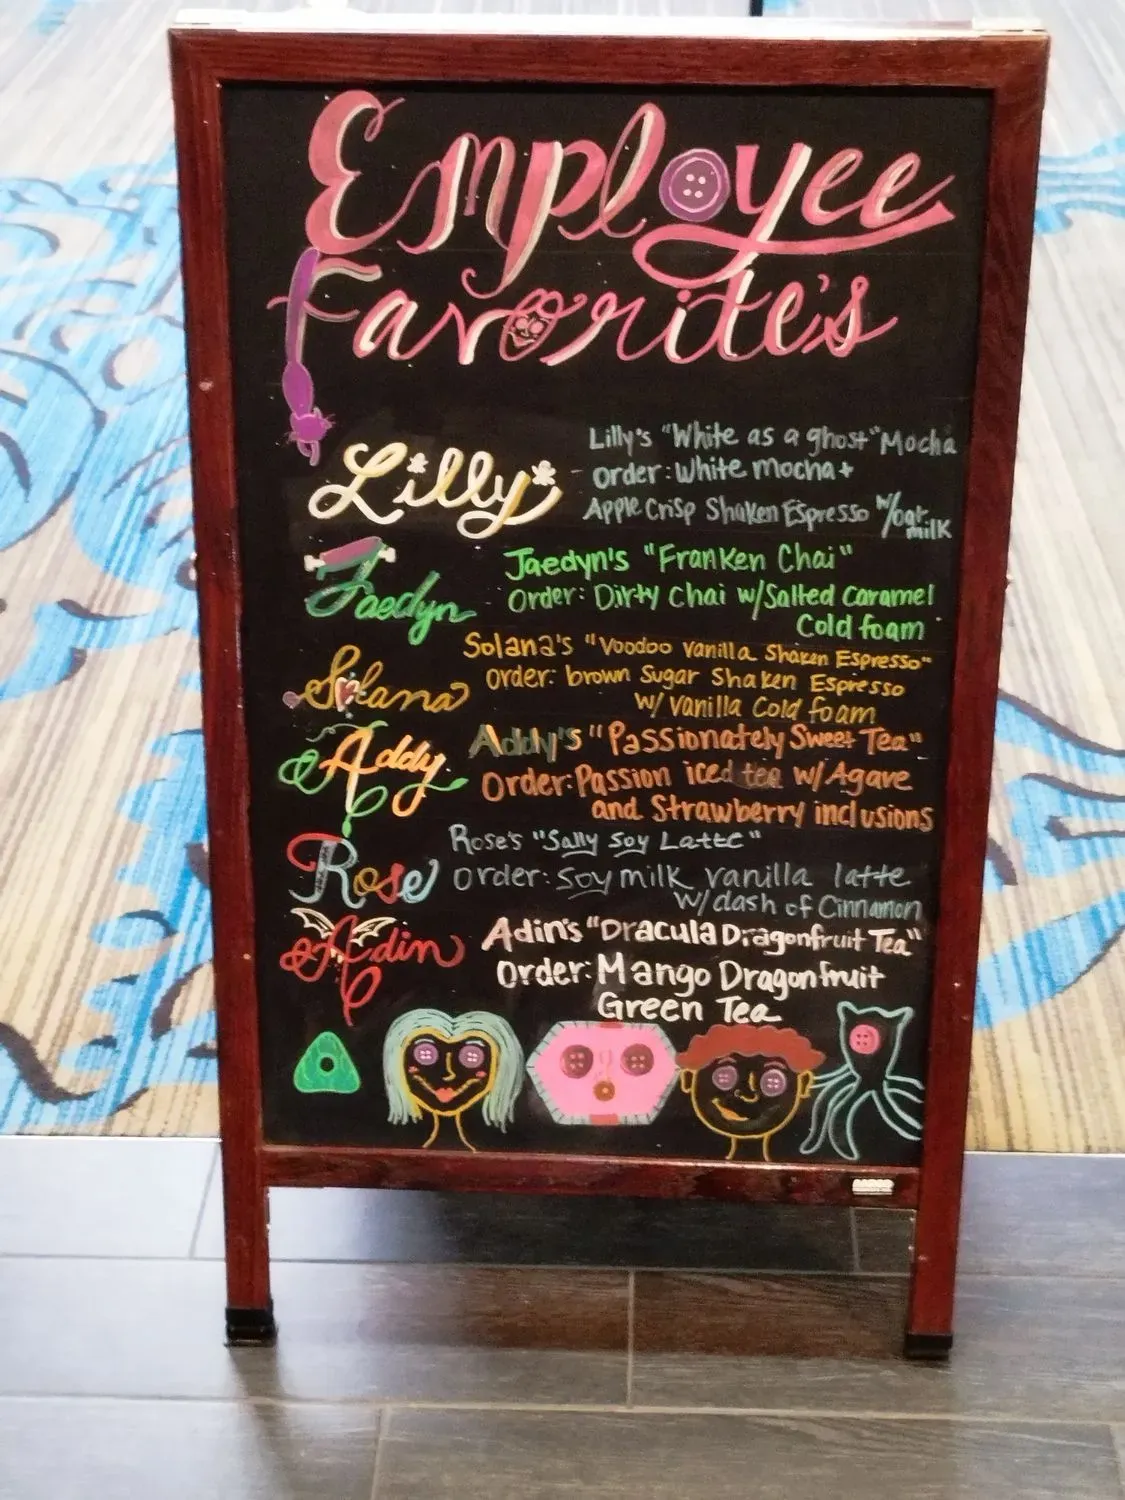 Employee
Favorite's
Lilly
Lilly's "White as a ghost" Mocha
Order: White mocha +
Apple Crisp Shaken Espresso w/oat milk
Jaedyn
Jaedyn's "Franken Chai"
Order: Dirty Chai w/Salted Caramel
Cold foam
Solana
Solana's "Voodoo vanilla Shaken Espresso"
order: brown Sugar Shaken Espresso
w/ vanilla Cold foam
Addy
Addy's "Passionately Sweet Tea"
Order: Passion iced tea w/ Agave
and Strawberry inclusions
Rose
Rose's "Sally Soy Latte"
order: Soy milk vanilla latte
w/dash of Cinnamon
Adin
Adin's "Dracula Dragonfruit Tea"
Order: Mango Dragonfruit
Green Tea